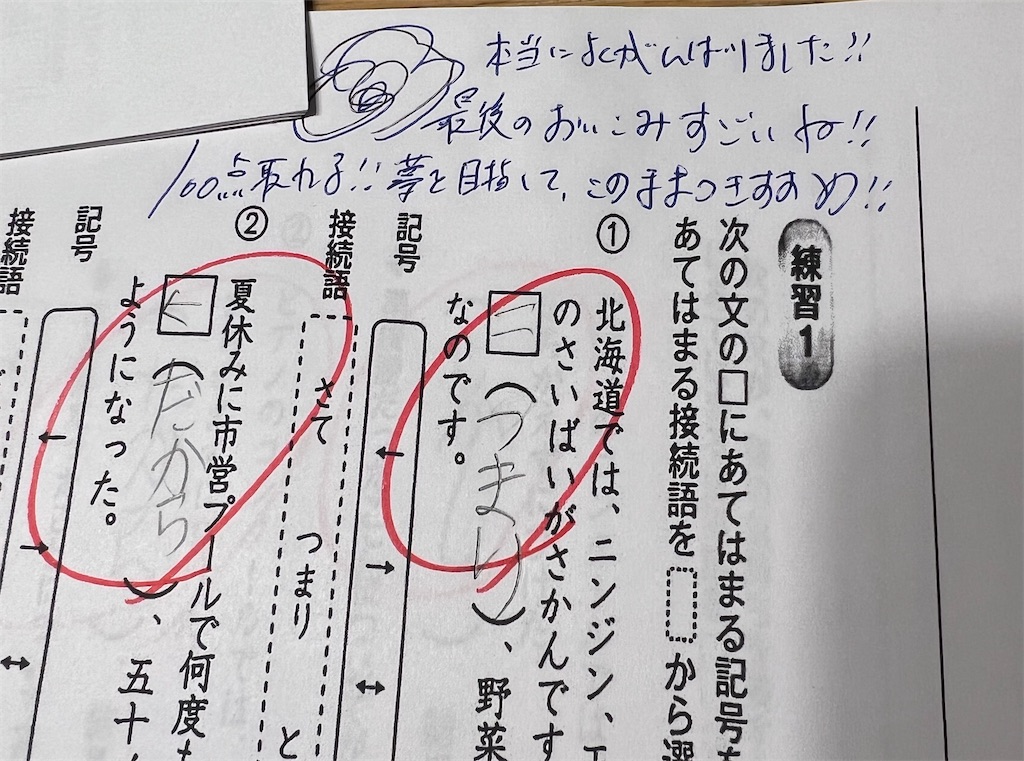 本当によくがんばりました!!
最後のおいこみすごいね!!
100点取れる!!夢を目指して、このままつきすすめ!!
練習1
次の文の□にあてはまる記号
あてはまる接続語を から選
①
北海道では、ニンジン、
のさいばいがさかんです
(つまり)、野菜
なのです。
記号
← → ↔
接続語
さて つまり と
②
夏休みに市営プールで何度も
(だから)、五十
ようになった。
記号
← → ↔
接続語